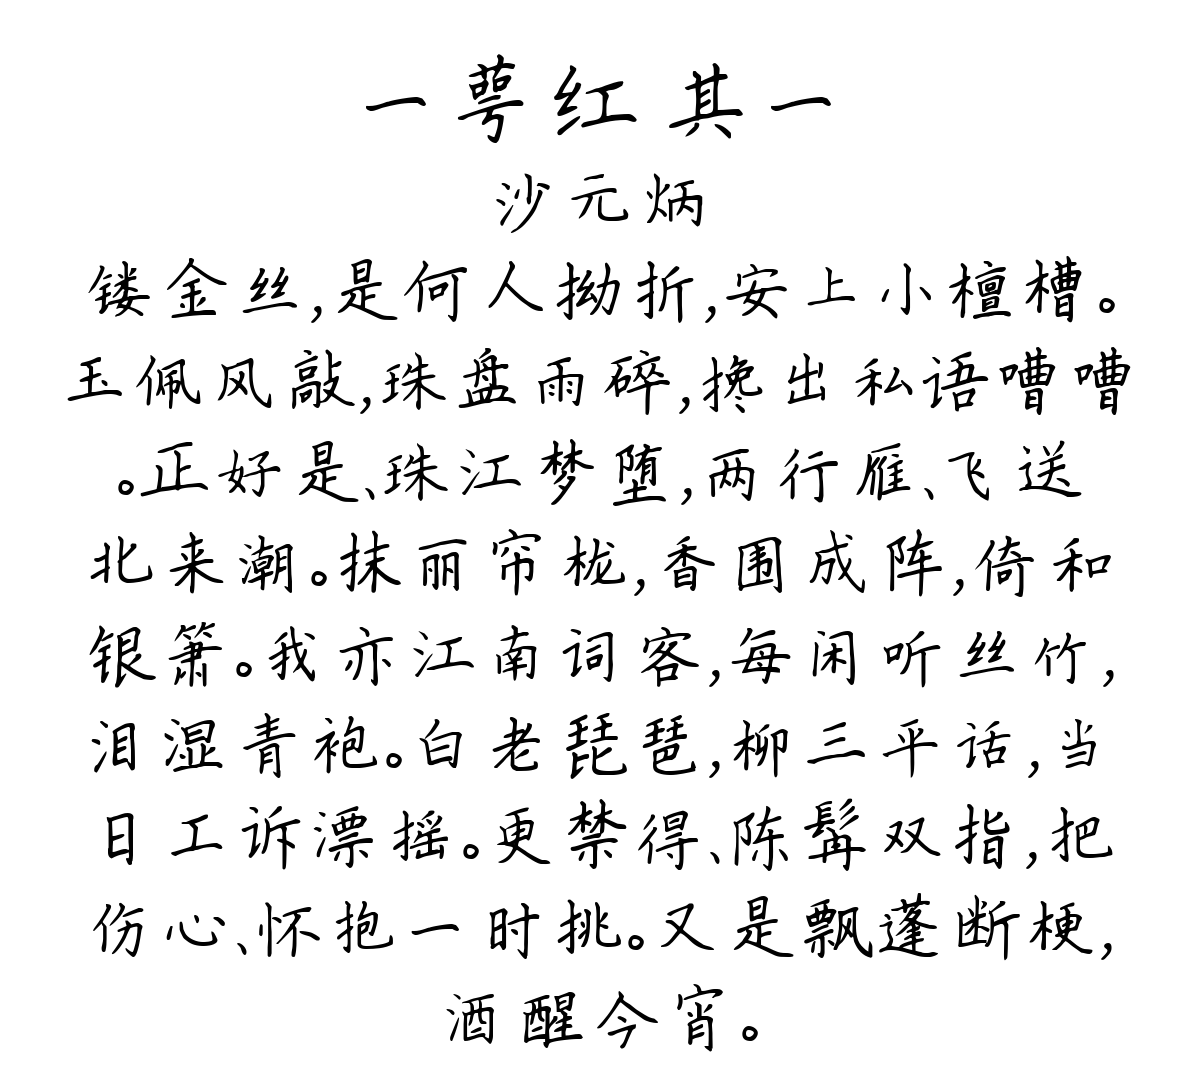 一萼红 其一
沙元炳
镂金丝,是何人拗折,安上小檀槽。
玉佩风敲,珠盘雨碎,搀出私语嘈嘈
。正好是、珠江梦堕,两行雁、飞送
北来潮。抹丽帘栊,香围成阵,倚和
银箫。我亦江南词客,每闲听丝竹,
泪湿青袍。白老琵琶,柳三平话,当
日工诉漂摇。更禁得、陈髯双指,把
伤心、怀抱一时挑。又是飘蓬断梗,
酒醒今宵。